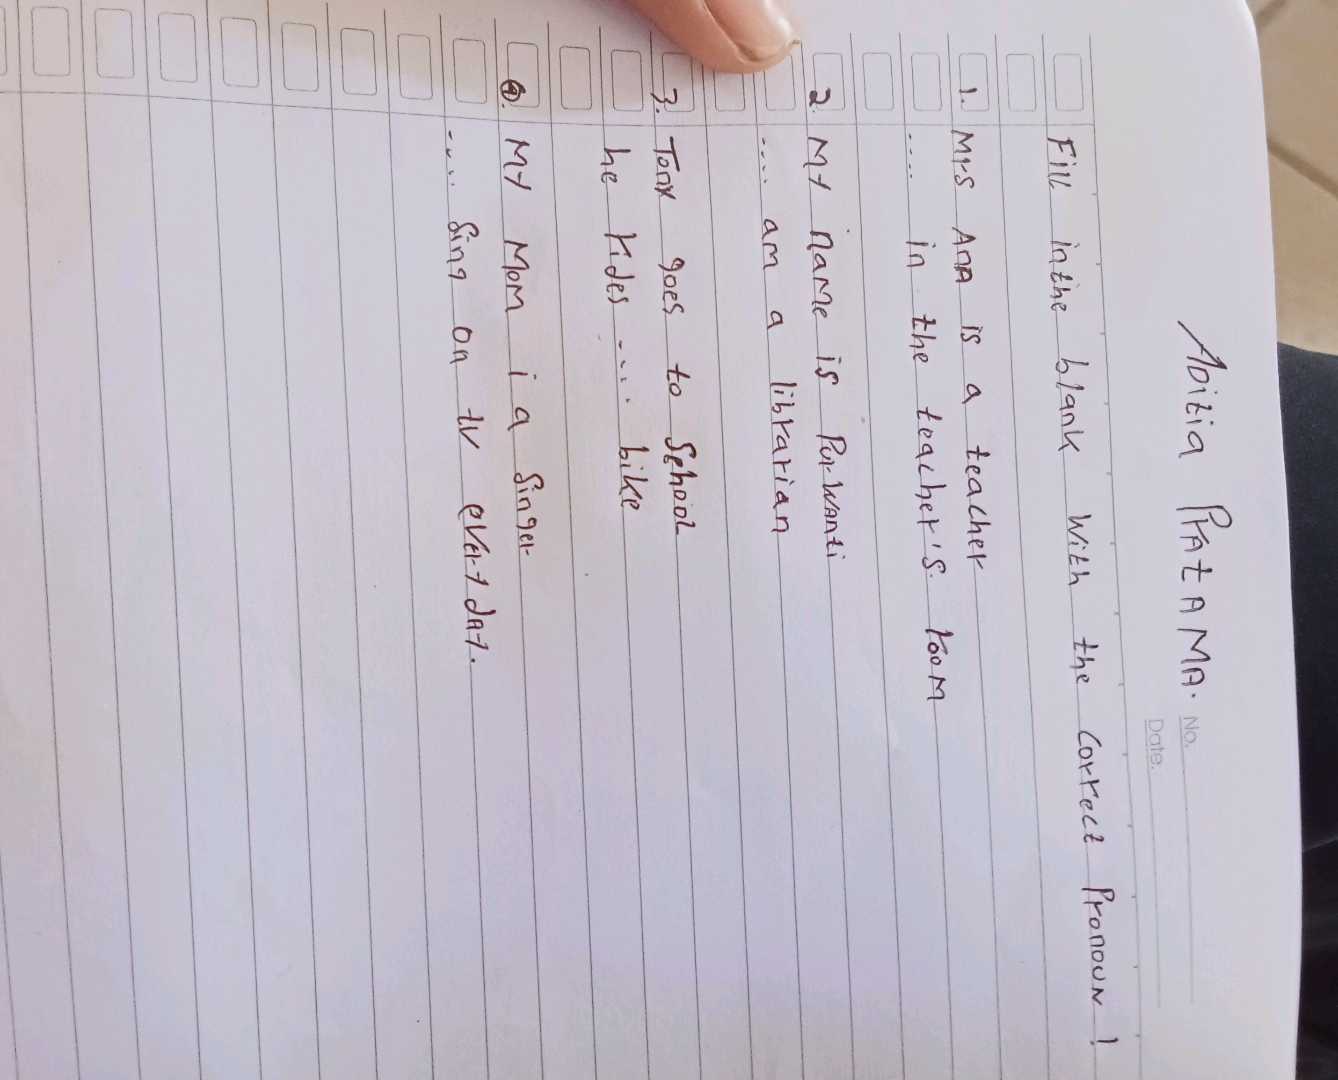 Aditia PratAMA.
No.
Date.
Fill in the blank with the correct Pronoun !
1. Mrs AnA is a teacher
.... in the teacher's room
2. My name is Purwanti
.... am a librarian
3. Tony goes to School
he rides .... bike
4. My Mom i a Singer
.... Sing on tv every day.